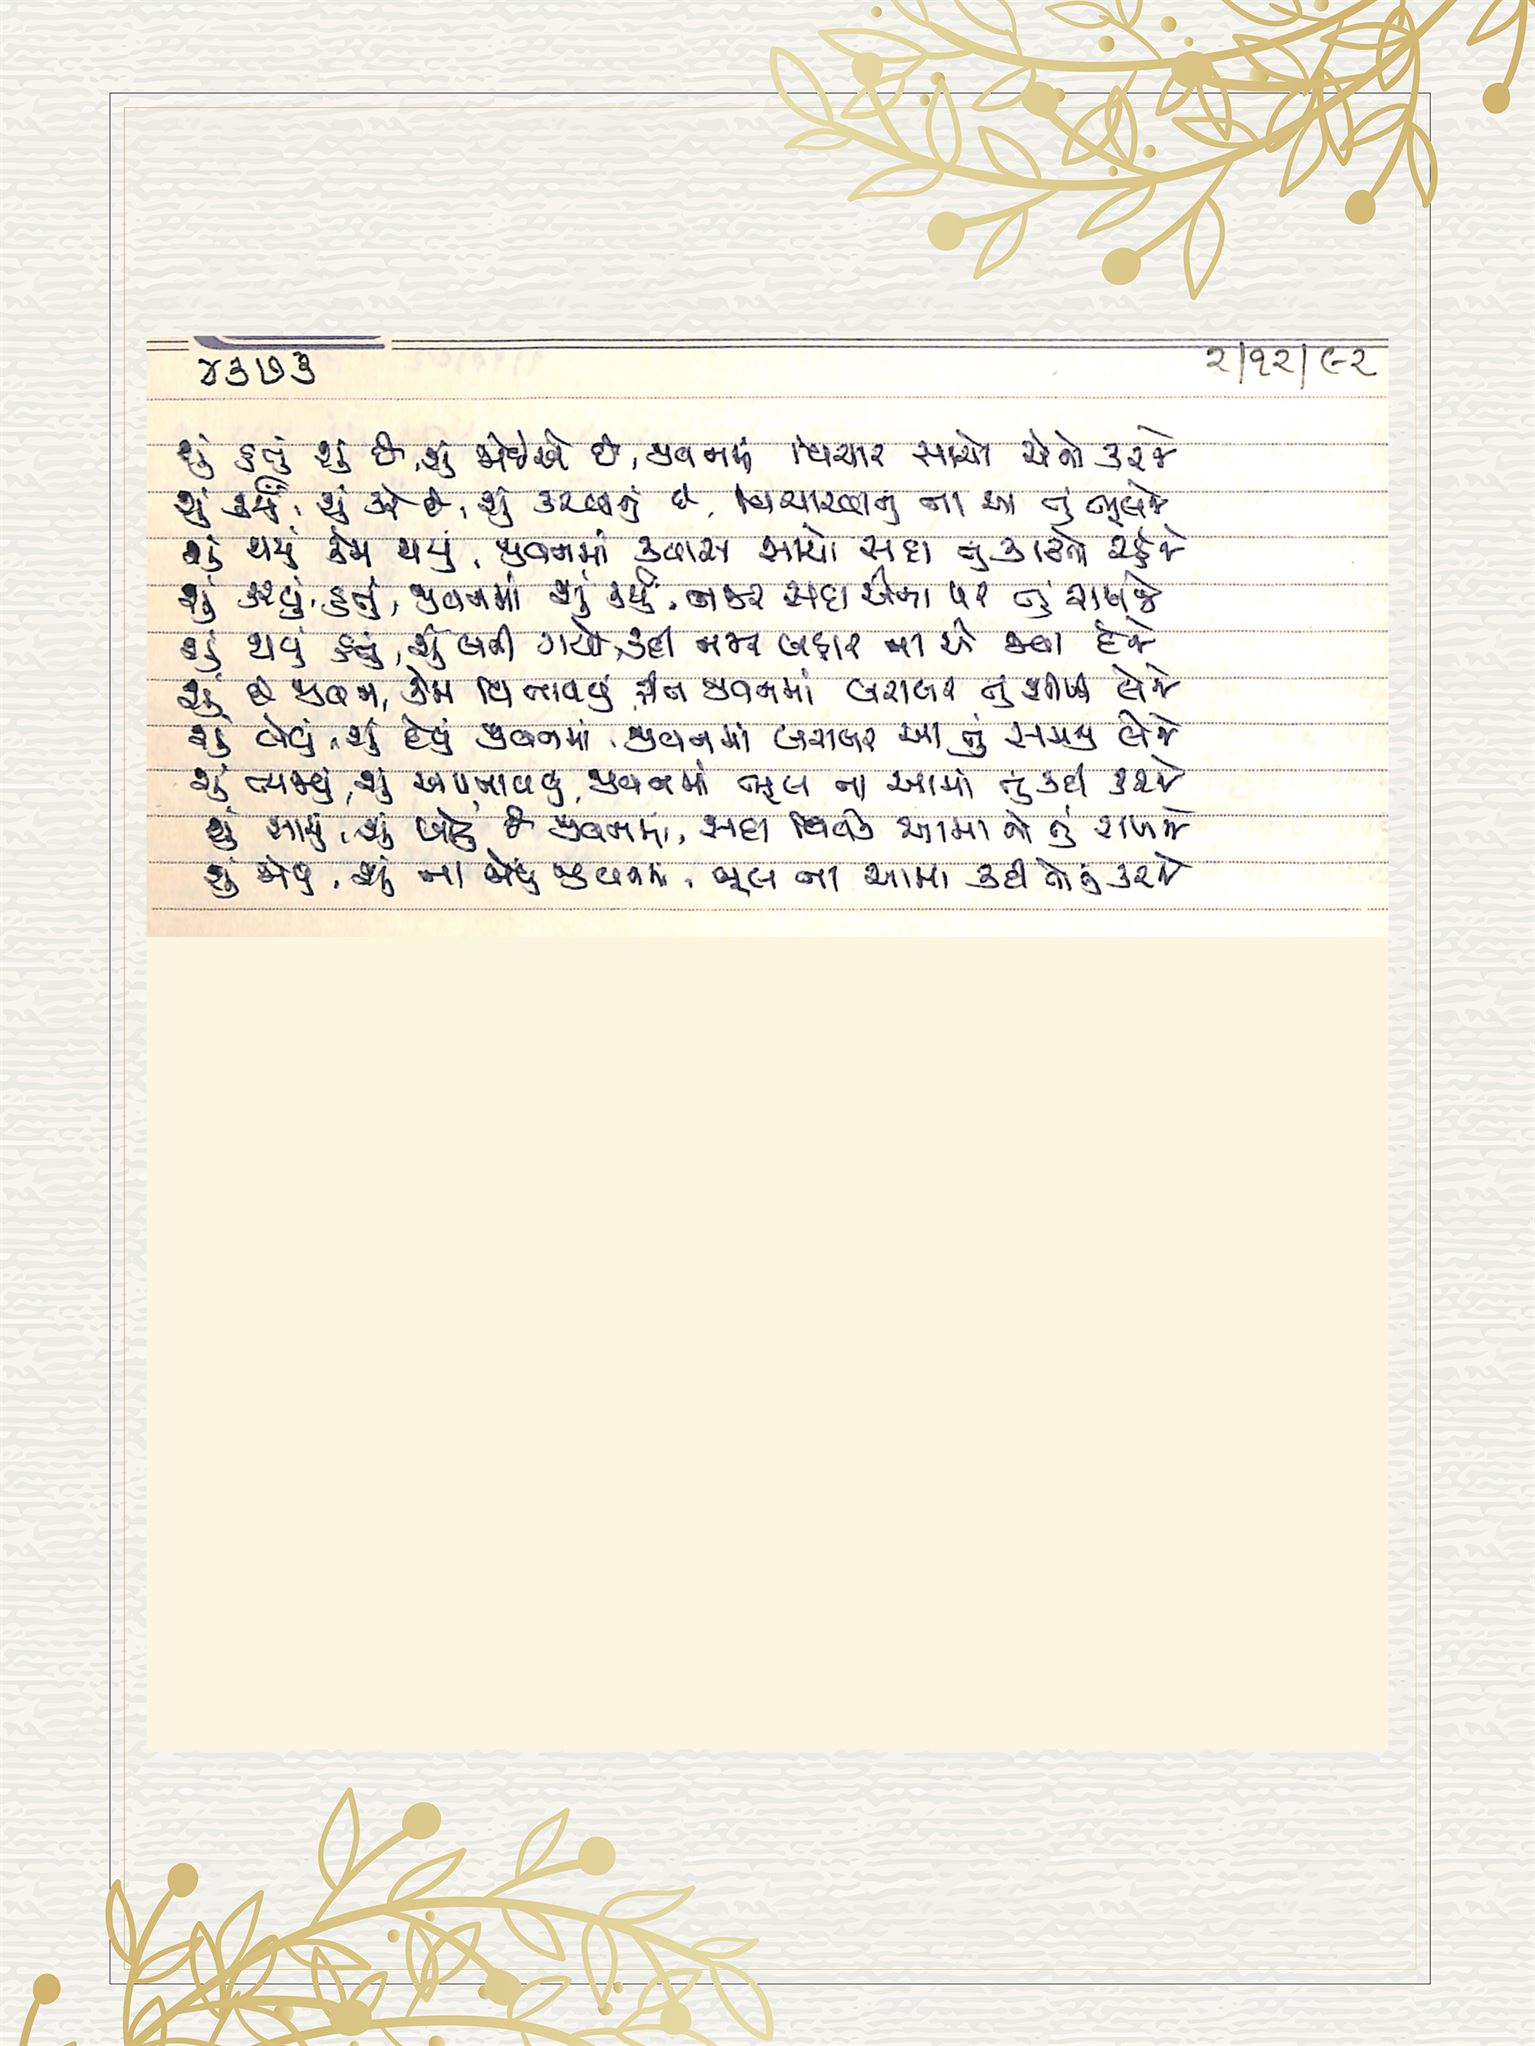 ૪૩૭૩
૨/૧૨/૯૨
શું હતું શું છે, શું જોઈએ છે, જીવનમાં વિચાર સાચો એનો કરજે
શું કર્યું, શું કરે છે, શું કરવાનું છે, વિચારવાનું ના આ તું ભૂલજે
શું થયું કેમ થયું, જીવનમાં ક્યાસ સાચો સદા તું કાઢતો રહેજે
શું કરવું હતું, જીવનમાં શું કર્યું, નજર સદા એના પર તું રાખજે
શું થવું હતું, શું બની ગયો, કદી નજર બહાર ના એ જવા દેજે
શું છે જીવન, કેમ વિતાવવું એને જીવનમાં બરાબર તું શીખી લેજે
શું લેવું, શું દેવું જીવનમાં, જીવનમાં બરાબર આ તું સમજી લેજે
શું ત્યજવું, શું અપનાવવું, જીવનમાં ભૂલ ના આમાં તું કદી કરજે
શું સાચું, શું ખોટું છે જીવનમાં, સદા વિવેક આમાં તો તું રાખજે
શું જોવું, શું ના જોવું જીવનમાં, ભૂલ ના આમાં કદી તો તું કરજે